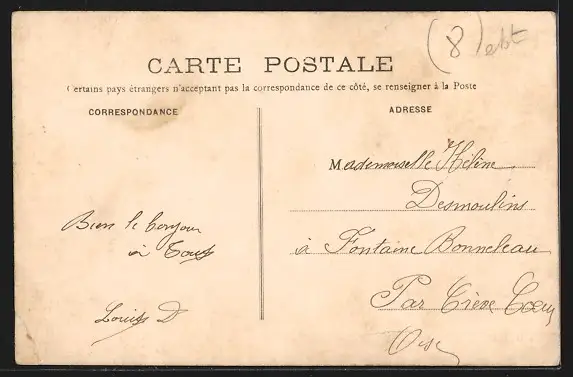 (8) ebt
CARTE POSTALE
Certains pays étrangers n'acceptant pas la correspondance de ce côté, se renseigner à la Poste
CORRESPONDANCE
ADRESSE
Mademoiselle Hélène
Desmoulins
à Fontaine Bonneleau
Par Crève Coeur
Oise
Bien le bonjour
à Tous
Louis D